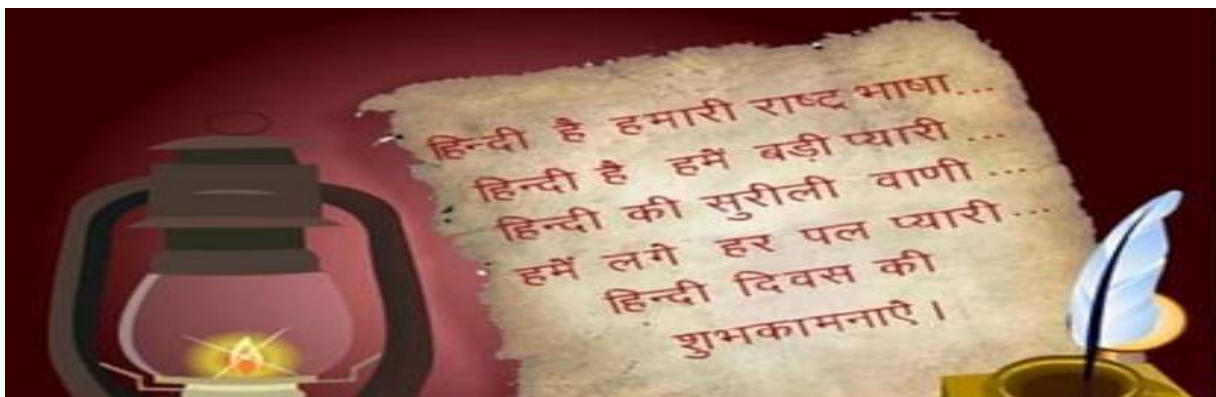 हिन्दी है हमारी राष्ट्र भाषा...
हिन्दी है हमें बड़ी प्यारी ...
हिन्दी की सुरीली वाणी ...
हमें लगे हर पल प्यारी...
हिन्दी दिवस की
शुभकामनाऐं ।